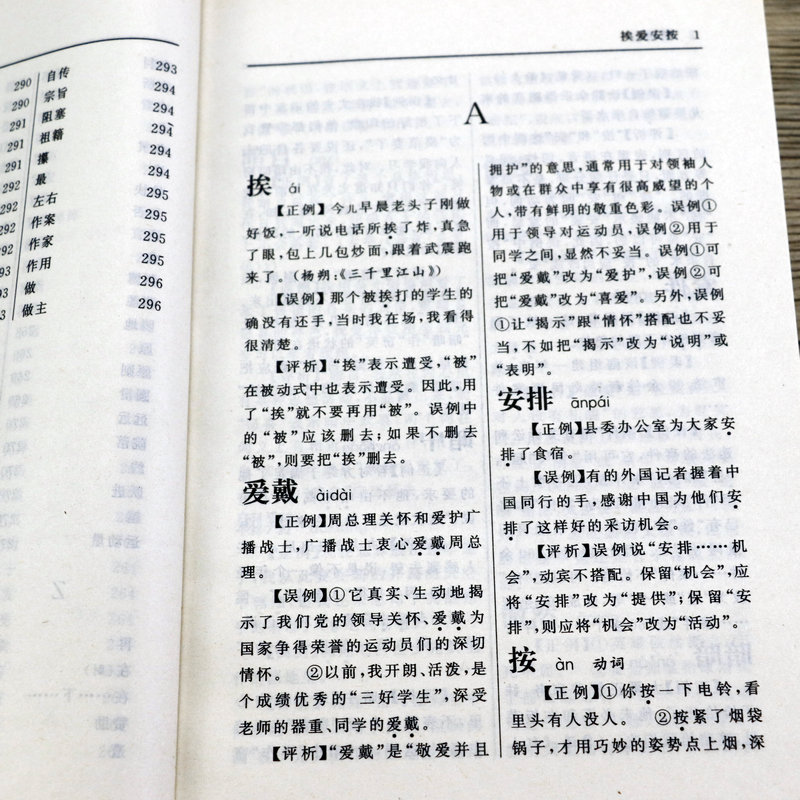 290 自传 293
290 宗旨 294
291 阻塞 294
291 祖籍 294
291 攥 294
292 最 294
292 左右 295
292 作案 295
292 作家 295
93 作用 295
93 做 296
3 做主 296
挨爱安按 1
A
挨 ái
【正例】今儿早晨老头子刚做
好饭，一听说电话所挨了炸，真急
了眼，包上几包炒面，跟着武震跑
来了。（杨朔：《三千里江山》）
【误例】那个被挨打的学生的
确没有还手，当时我在场，我看得
很清楚。
【评析】“挨”表示遭受，“被”
在被动式中也表示遭受。因此，用
了“挨”就不要再用“被”。误例中
的“被”应该删去；如果不删去
“被”，则要把“挨”删去。
爱戴 àidài
【正例】周总理关怀和爱护广
播战士，广播战士衷心爱戴周总
理。
【误例】①它真实、生动地揭
示了我们党的领导关怀、爱戴为
国家争得荣誉的运动员们的深切
情怀。 ②以前，我开朗、活泼，是
个成绩优秀的“三好学生”，深受
老师的器重、同学的爱戴。
【评析】“爱戴”是“敬爱并且
拥护”的意思，通常用于对领袖人
物或在群众中享有很高威望的个
人，带有鲜明的敬重色彩。误例①
用于领导对运动员，误例②用于
同学之间，显然不妥当。误例①可
把“爱戴”改为“爱护”，误例②可
把“爱戴”改为“喜爱”。另外，误例
①让“揭示”跟“情怀”搭配也不妥
当，不如把“揭示”改为“说明”或
“表明”。
安排 ānpái
【正例】县委办公室为大家安
排了食宿。
【误例】有的外国记者握着中
国同行的手，感谢中国为他们安
排了这样好的采访机会。
【评析】误例说“安排……机
会”，动宾不搭配。保留“机会”，应
将“安排”改为“提供”；保留“安
排”，则应将“机会”改为“活动”。
按 àn 动词
【正例】①你按一下电铃，看
里头有人没人。 ②按紧了烟袋
锅子，才用巧妙的姿势点上烟，深